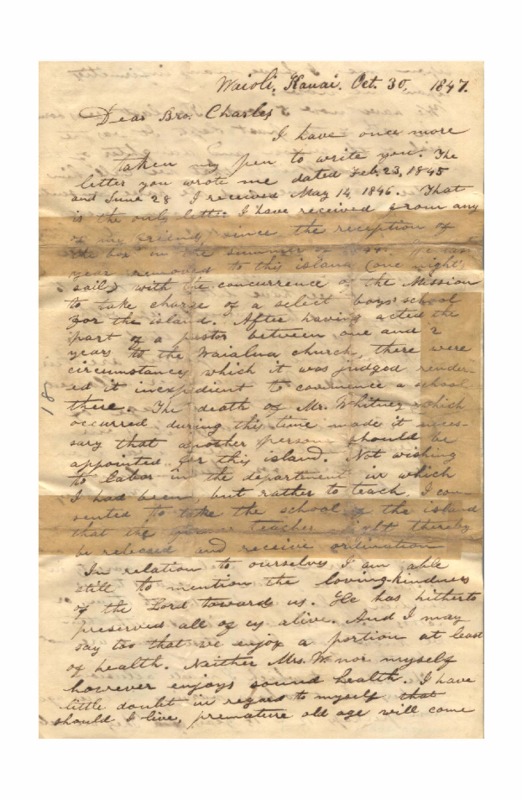 Waioli, Kauai. Oct. 30, 1847.
Dear Bro. Charles
I have once more
taken my pen to write you. The
letter you wrote me dated Feb. 23, 1845
and June 28 I received May 14 1846. That
is the only letter I have received from any
of my friends since the reception of
the box in the summer of
year removed to this island (one night's
sail) with the concurrence of the Mission
to take charge of a select boys' school
for the island. After having acted the
part of a pastor between one and 2
years to the Waialua church, there were
circumstances which it was judged render-
ed it inexpedient to commence a school
there. The death of Mr. Whitney which
occurred during this time made it neces-
sary that another person should be
appointed for this island. Not wishing
to labor in the department in which
I had been, but rather to teach, I con-
sented to take the school of the island
that the teacher might thereby
be released and receive ordination
In relation to ourselves I am able
still to mention the loving kindness
of the Lord towards us. He has hitherto
preserved all of us alive. And I may
say too that we enjoy a portion at least
of health. Neither Mrs. W nor myself
however enjoys sound health. I have
little doubt in regard to myself that
should I live, premature old age will come
18